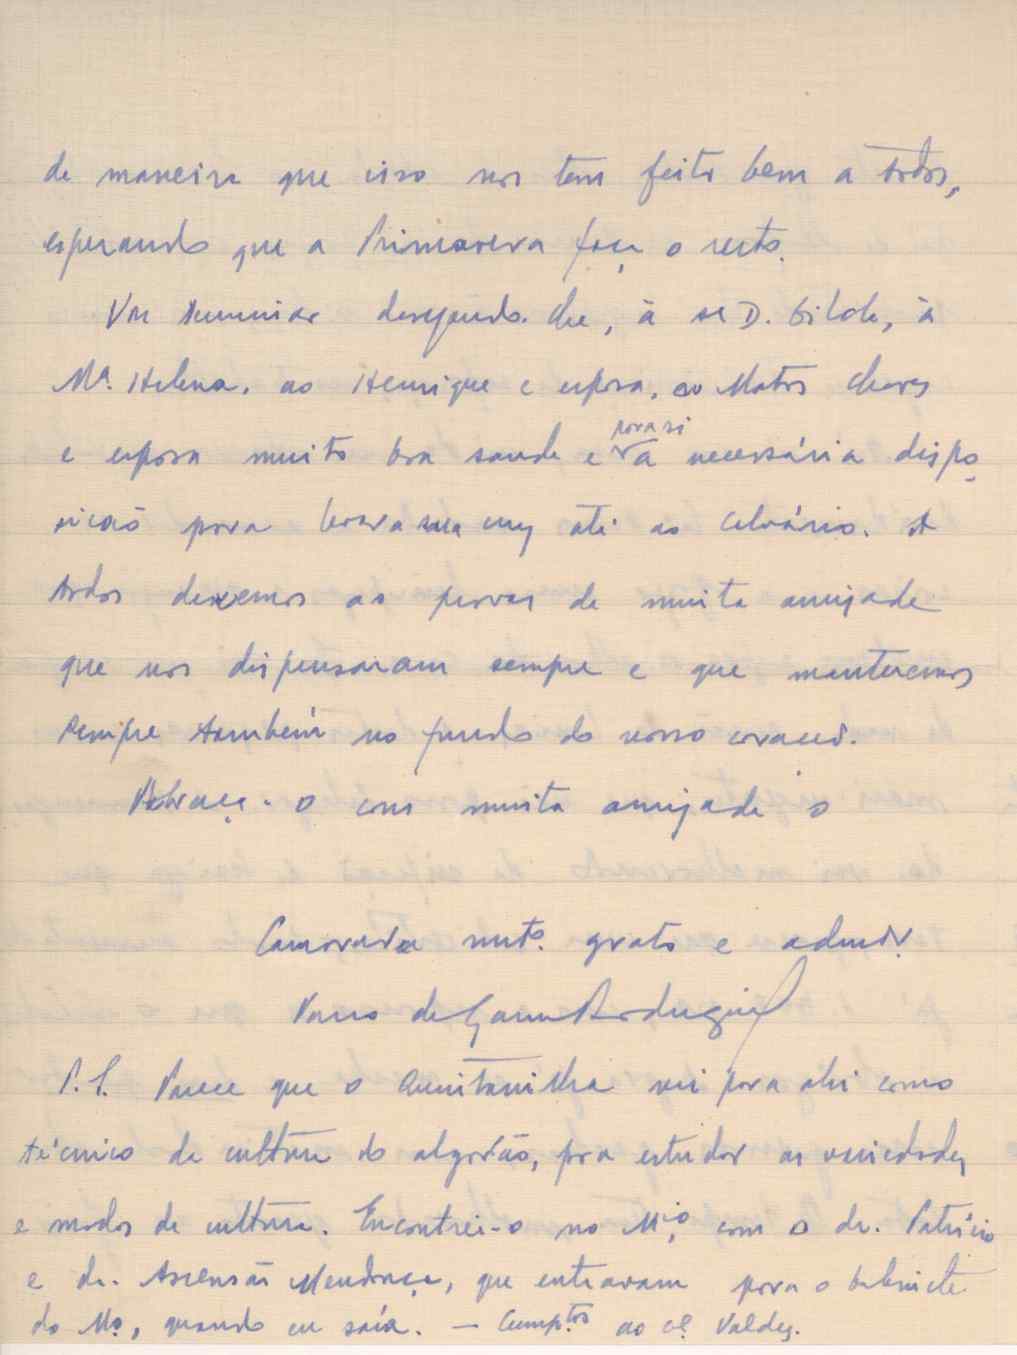 de maneira que isso nos tem feito bem a todos,
esperando que a Primavera faça o resto.
Vou terminar desejando-lhe, à sra D. Gilda, à
Mª. Helena, ao Henrique e esposa, ao Matos Chaves
e esposa muito boa saude e para si a necessária dispo
sição para levar a sua cruz até ao calvário. A
todos devemos as provas de muita amizade
que nos dispensaram sempre e que manteremos
sempre também no fundo do nosso coração.
Abraça-o com muita amizade o
Camarada muto. grato e admdr.
de Gama Rodrigues
P.S. Parece que o Quintanilha vai para ahi como
técnico de cultura do algodão, para estudar as variedades
e modos de cultura. Encontrei-o no Mio, com o dr. Patrício
e dr. Ascensão Mendonça, que entravam para o Gabinete
do Mo., quando eu saía. — Cumptos ao cel Valdez.